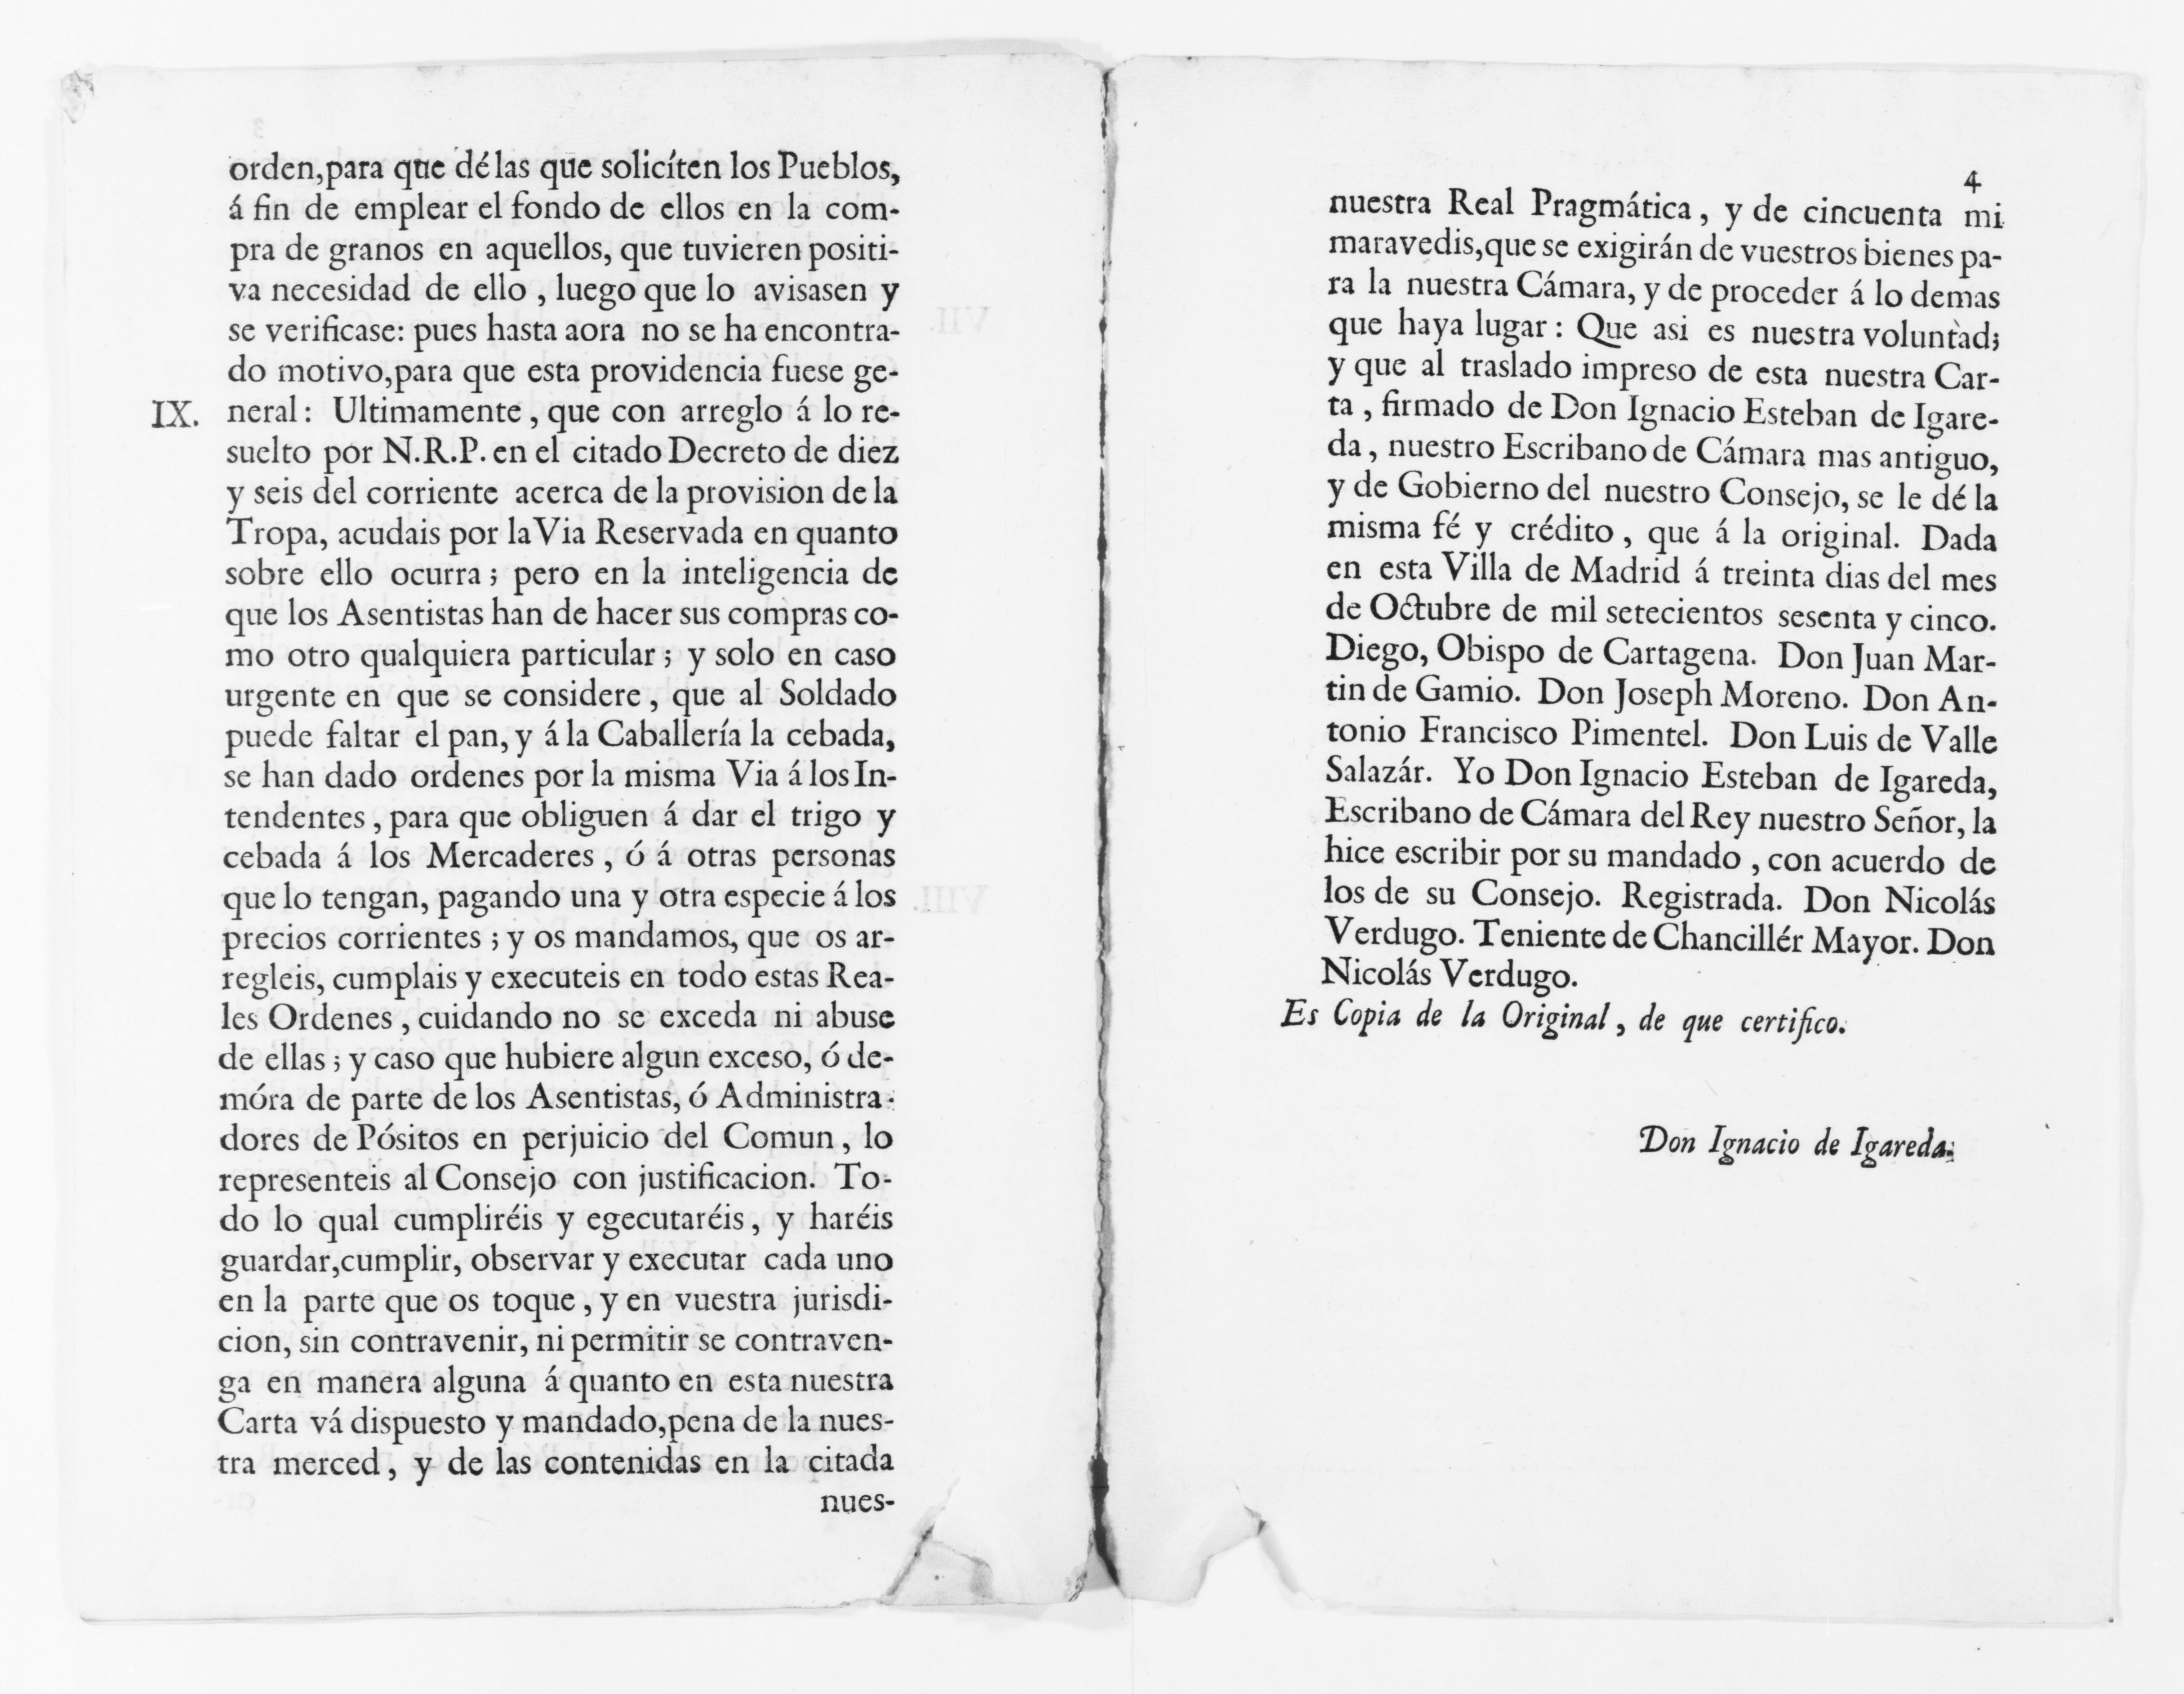 orden,para que dé las que solicíten los Pueblos,
á fin de emplear el fondo de ellos en la com-
pra de granos en aquellos, que tuvieren positi-
va necesidad de ello , luego que lo avisasen y
se verificase: pues hasta aora no se ha encontra-
do motivo,para que esta providencia fuese ge-
IX. neral: Ultimamente , que con arreglo á lo re-
suelto por N.R.P. en el citado Decreto de diez
y seis del corriente acerca de la provision de la
Tropa, acudais por la Via Reservada en quanto
sobre ello ocurra ; pero en la inteligencia de
que los Asentistas han de hacer sus compras co-
mo otro qualquiera particular ; y solo en caso
urgente en que se considere , que al Soldado
puede faltar el pan, y á la Caballería la cebada,
se han dado ordenes por la misma Via á los In-
tendentes , para que obliguen á dar el trigo y
cebada á los Mercaderes , ó á otras personas
que lo tengan, pagando una y otra especie á los
precios corrientes ; y os mandamos, que os ar-
regleis, cumplais y executeis en todo estas Rea-
les Ordenes , cuidando no se exceda ni abuse
de ellas ; y caso que hubiere algun exceso, ó de-
móra de parte de los Asentistas, ó Administra-
dores de Pósitos en perjuicio del Comun , lo
representeis al Consejo con justificacion. To-
do lo qual cumpliréis y egecutaréis , y haréis
guardar,cumplir, observar y executar cada uno
en la parte que os toque , y en vuestra jurisdi-
cion, sin contravenir, ni permitir se contraven-
ga en manera alguna á quanto en esta nuestra
Carta vá dispuesto y mandado,pena de la nues-
tra merced , y de las contenidas en la citada
nues-
4
nuestra Real Pragmática , y de cincuenta mi
maravedis,que se exigirán de vuestros bienes pa-
ra la nuestra Cámara, y de proceder á lo demas
que haya lugar : Que asi es nuestra voluntad;
y que al traslado impreso de esta nuestra Car-
ta , firmado de Don Ignacio Esteban de Igare-
da , nuestro Escribano de Cámara mas antiguo,
y de Gobierno del nuestro Consejo, se le dé la
misma fé y crédito , que á la original. Dada
en esta Villa de Madrid á treinta dias del mes
de Octubre de mil setecientos sesenta y cinco.
Diego, Obispo de Cartagena. Don Juan Mar-
tin de Gamio. Don Joseph Moreno. Don An-
tonio Francisco Pimentel. Don Luis de Valle
Salazár. Yo Don Ignacio Esteban de Igareda,
Escribano de Cámara del Rey nuestro Señor, la
hice escribir por su mandado , con acuerdo de
los de su Consejo. Registrada. Don Nicolás
Verdugo. Teniente de Chancillér Mayor. Don
Nicolás Verdugo.
Es Copia de la Original , de que certifico.
Don Ignacio de Igareda.